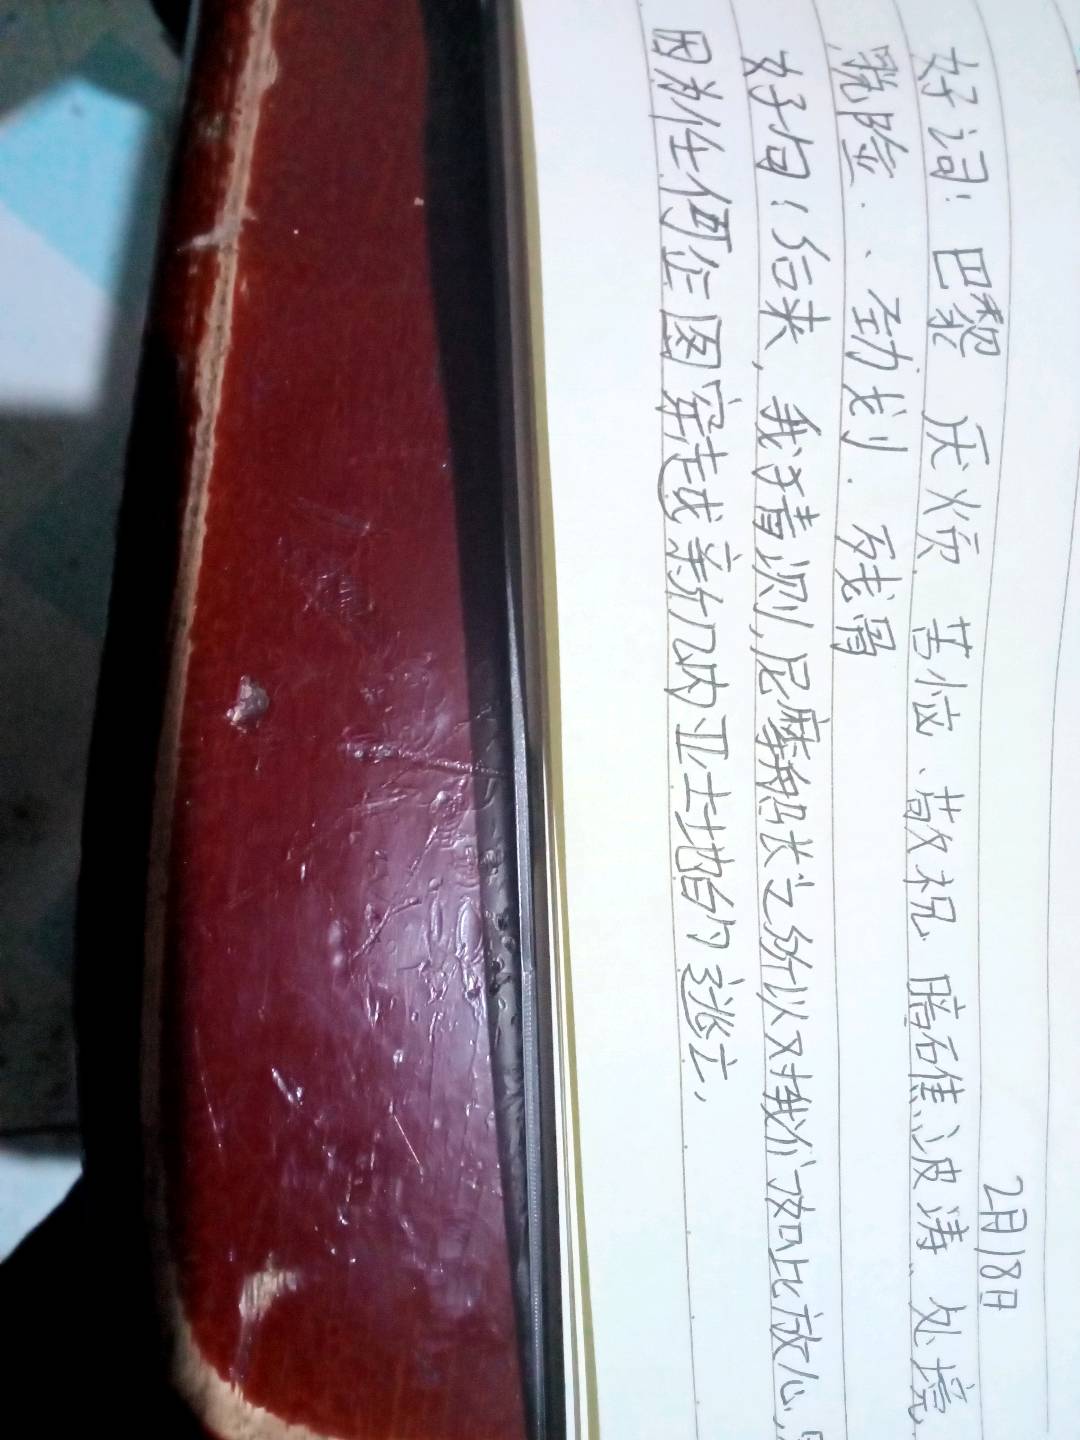 2月18日
好词：巴黎 厌烦 苦恼、敬祝 暗礁波涛、处境
脱险、、劲划、残骨
好句：后来，我猜测，尼摩船长之所以对我们如此放心，
因为任何企图穿越新几内亚土地的逃亡，